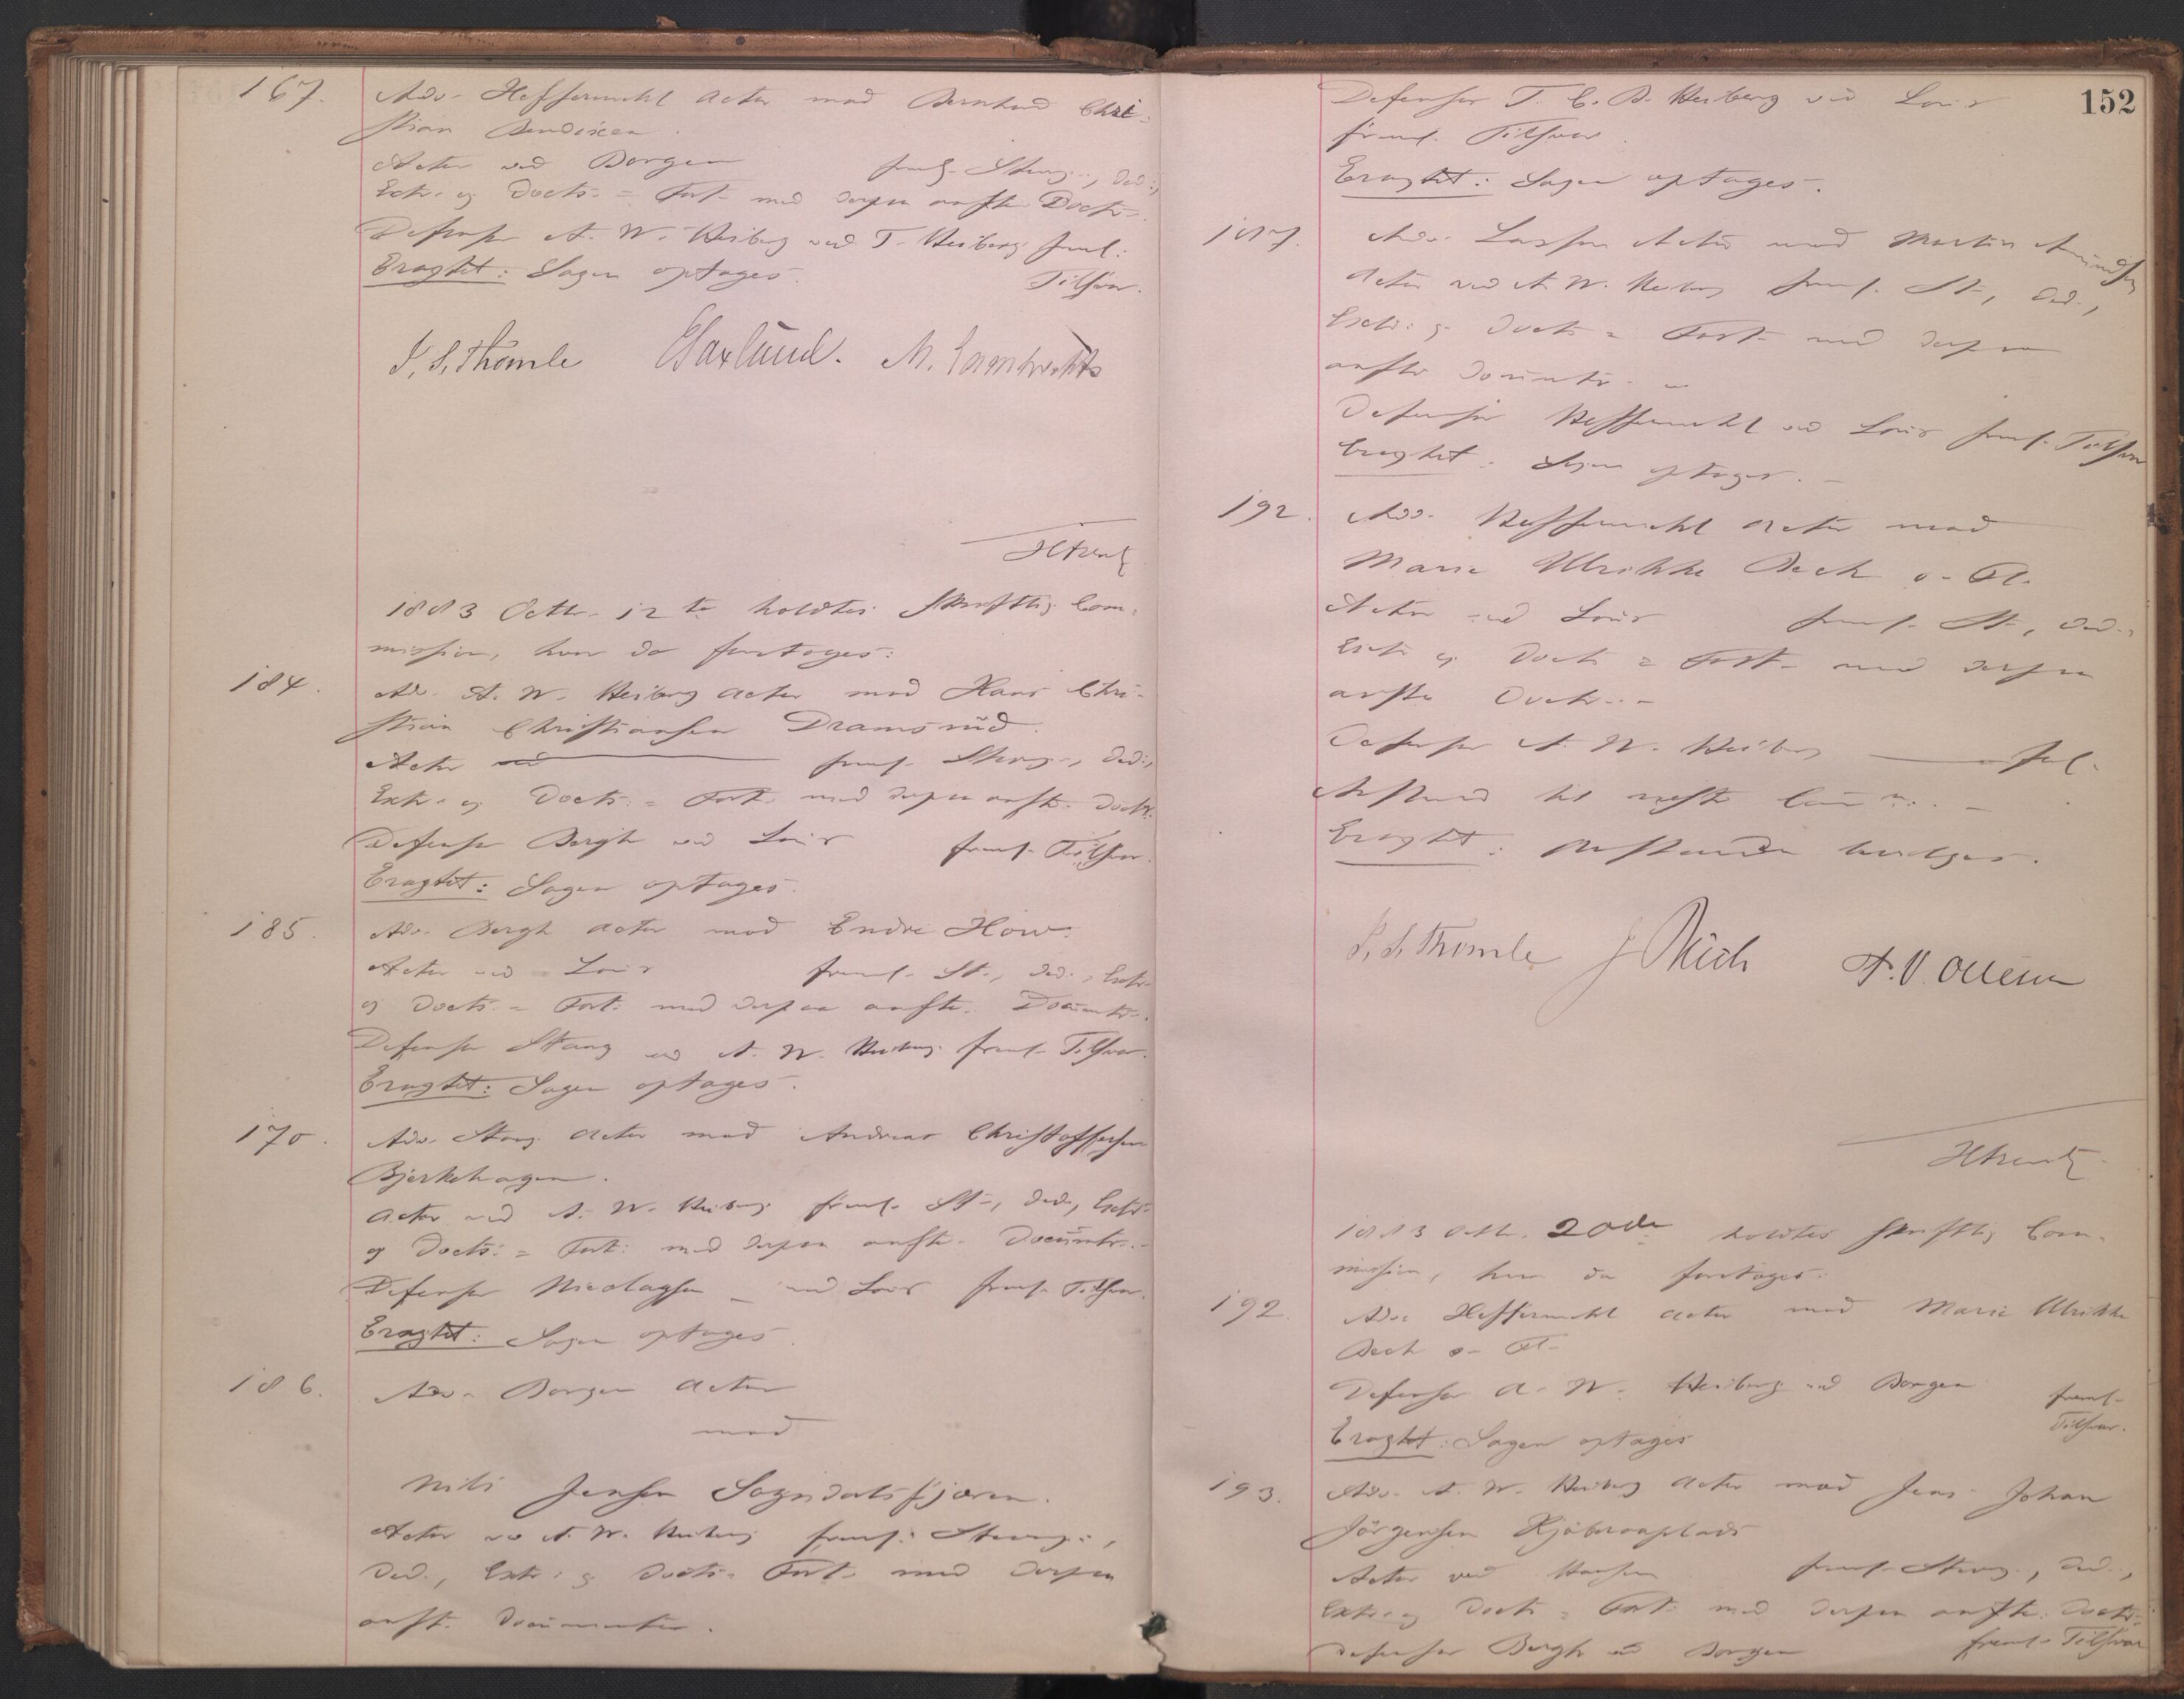 167.
Adv. Heffermehl Actor mod Bernhard Chri-
stian Bendixen.
Actor ved Borgen freml. Stevng., Ded.,
Extr. og Docts. = Fort. med derpaa anførte Doctr.
Defensor A. W. Heiberg ved T. Heiberg freml.
Eragtet: Sagen optages. Tilsvar.
J. S. Thomle ESaxlund. M. Lambrechts
1883 Octbr. 12te holdtes skriftlig Com-
mission, hvor da foretoges:
184.
Adv. A. W. Heiberg Actor mod Hans Chri-
stian Christiansen Dramsrud.
Actor ved freml. Stevng., Ded.,
Extr. og Docts. = Fort. med derpaa anførte Doctr.
Defensor Bergh ved Lous freml. Tilsvar.
Eragtet: Sagen optages.
185.
Adv. Bergh Actor mod Endre How.
Actor ved Lous freml. St., Ded., Extr.
og Docts. = Fort. med derpaa anførte Documtr.
Defensor Stang ved A. W. Heiberg freml. Tilsvar.
Eragtet: Sagen optages.
170.
Adv. Stang Actor mod Andreas Christoffersen
Bjerkehagen.
Actor ved A. W. Heiberg freml. St., Ded., Extr.
og Docts. = Fort. med derpaa anførte Documtr.
Defensor Nicolaysen ved Lous freml. Tilsvar.
Eragtet: Sagen optages.
186.
Adv. Borgen Actor
mod
Nils Jensen Sogndalsfjæren.
Actor ved A. W. Heiberg freml. Stevng.,
Ded., Extr. og Docts. = Fort. med derpaa
anft. Documenter.
152
Defensor T. C. B. Heiberg ved Lous
freml. Tilsvar.
Eragtet: Sagen optages.
187.
Adv. Lasson Actor mod Martin Amundsen
Actor ved A. W. Heiberg freml. St., Ded.,
Extr. og Docts = Fort. med derpaa
anførte Documtr.
Defensor Heffermehl ved Lous freml. Tilsvar
Eragtet: Sagen optages.
192.
Adv. Heffermehl Actor mod
Marie Ulrikke Bech o. Fl.
Actor ved Lous freml. St., Ded.,
Extr. og Docts = Fort. med derpaa
anførte Doctr.
Defensor A. W. Heiberg
Anstand til næste
Eragtet: Anstanden bevilges.
J. S. Thomle
1883 Octbr. 20de holdtes skriftlig Com-
mission, hvor da foretoges:
192.
Adv. Heffermehl Actor mod Marie Ulrikke
Bech o. Fl.
Defensor A. W. Heiberg ved Borgen freml.
Tilsvar.
Eragtet: Sagen optages
193.
Adv. A. W. Heiberg Actor mod Jens Johan
Jörgensen
Actor ved freml. Stevng., Ded.,
Extr. og Docts = Fort. med derpaa anførte Doctr.
Defensor Bergh ved Borgen freml. Tilsvar